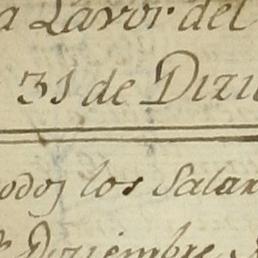 a Lavor del
31 de Dizi
odos los Salar
Diziembre